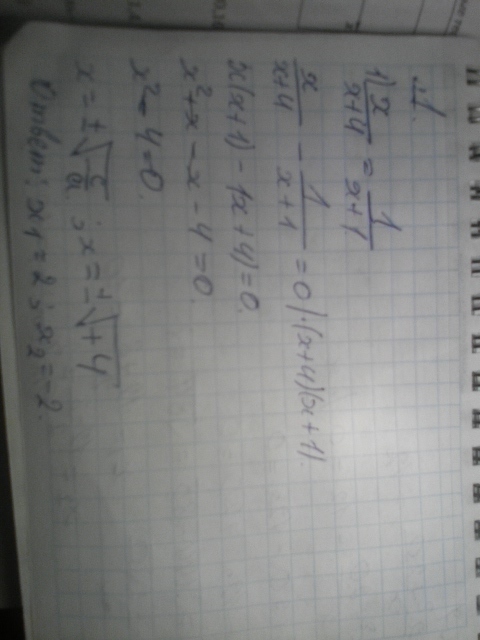 №1.
1) x/x+4 = 1/x+1.
x/x+4 - 1/x+1 = 0 | ·(x+4)(x+1).
x(x+1) - 1(x+4)=0.
x²+x-x-4=0.
x²-4=0.
x=±√c/a ; x=±√+4
Ответ: x1=2; x2=-2.